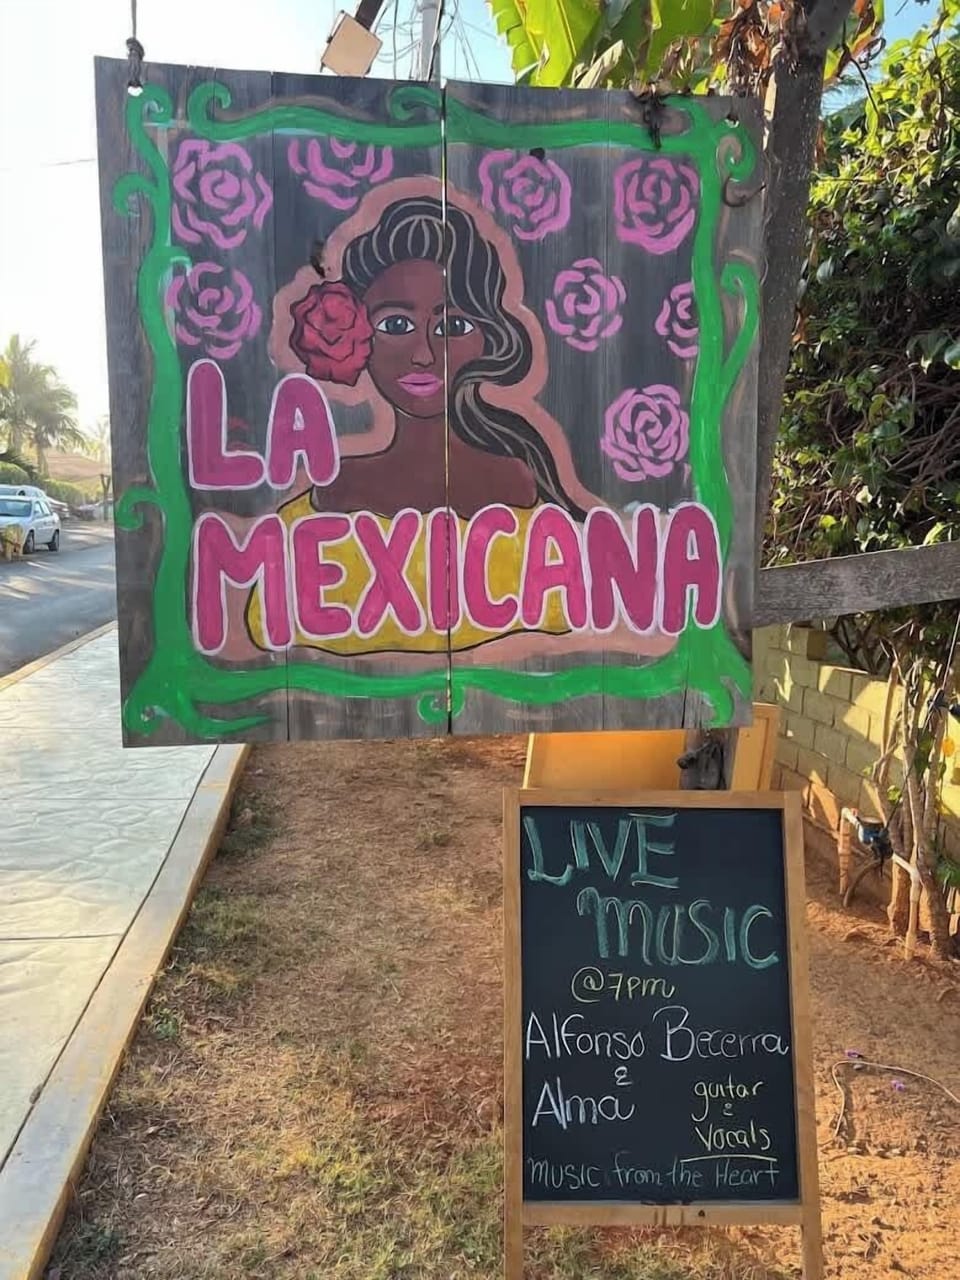 LA
MEXICANA
LIVE
MUSIC
@7pm
Alfonso Becerra
&
Alma
guitar
&
Vocals
Music from the Heart